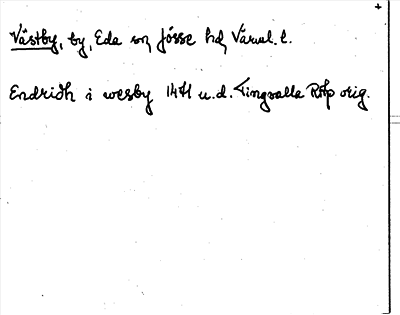 Västby, by, Eda sn Jösse hd, Värml. l.
Endridh i wesby 1471 u.d. Tingvalla RAp orig.